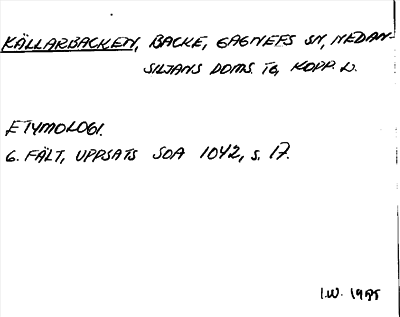 KÄLLARBACKEN, BACKE, GAGNEFS SN, NEDAN-
SILJANS DOMS. TG, KOPP. L.
ETYMOLOGI.
G. FÄLT, UPPSATS SOA 1042, s. 17.
I.W. 1985